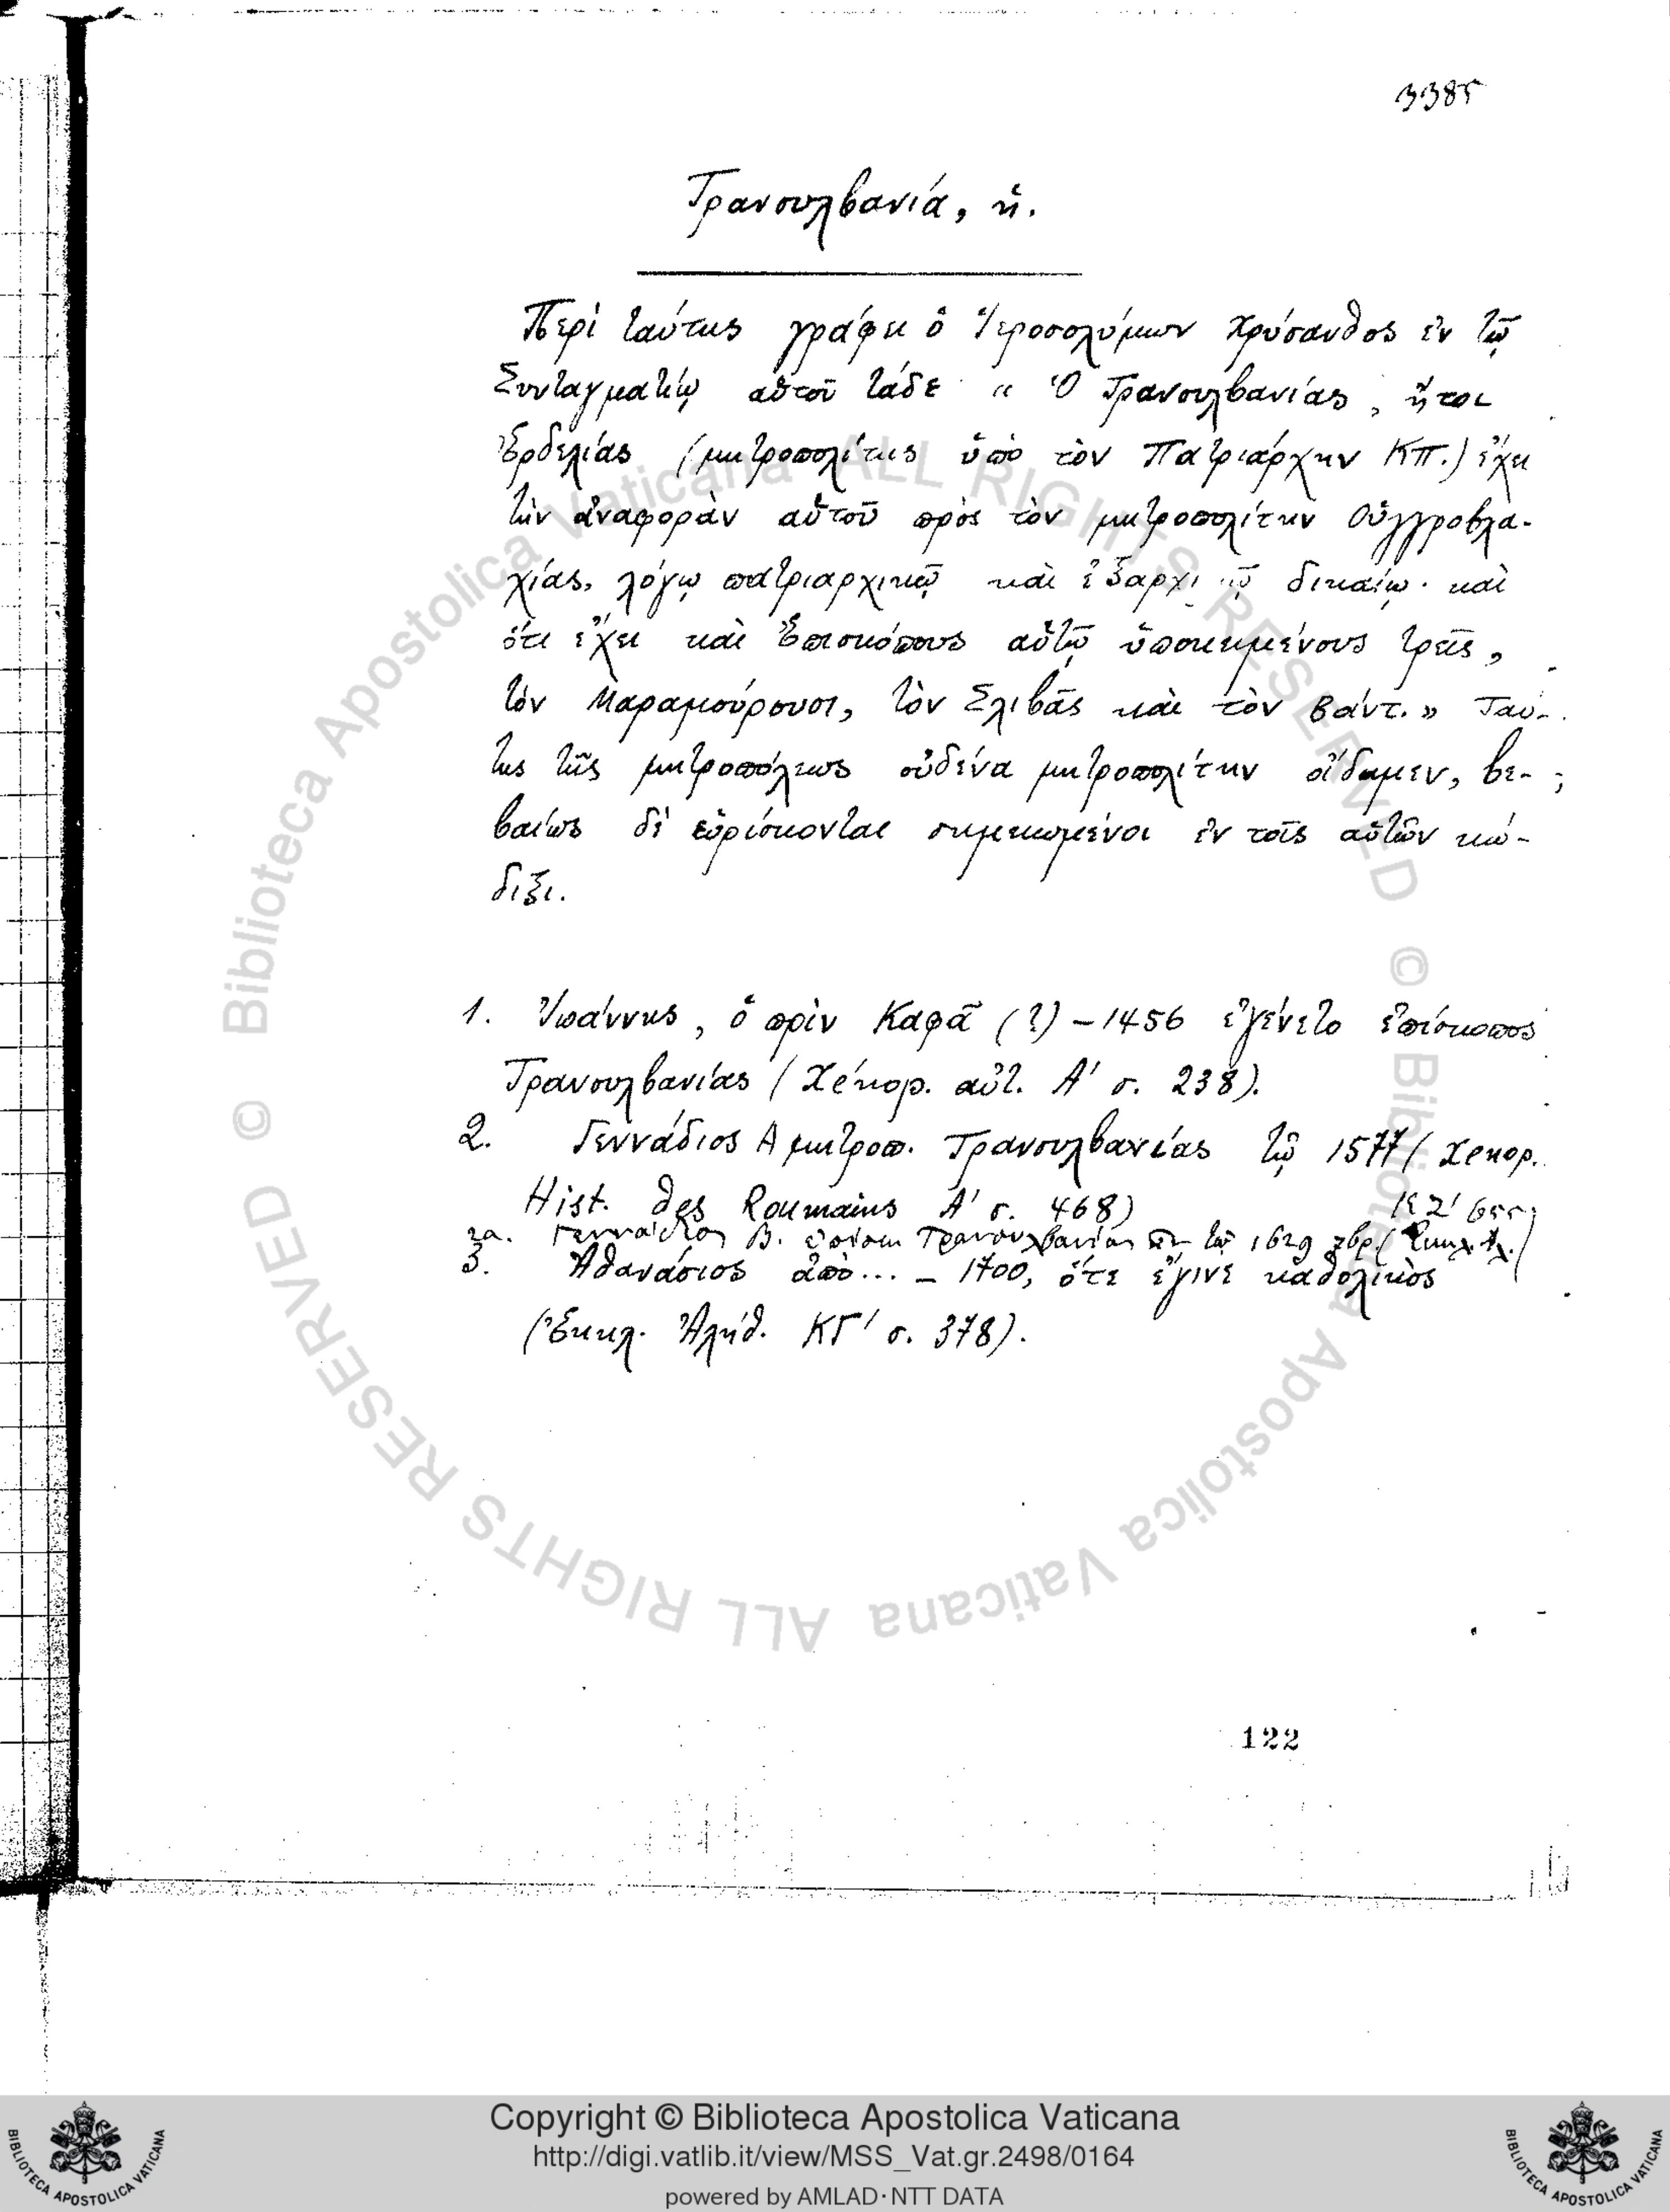 3385
Τρανσυλβανία, ἡ.
Περὶ ταύτης γράφει ὁ Ἱεροσολύμων Χρύσανθος ἐν τῷ
Συνταγματίῳ αὐτοῦ τάδε· « Ὁ Τρανσυλβανίας, ἤτοι
Ἐρδελίας (μητροπολίτης ὑπὸ τὸν Πατριάρχην ΚΠ.) ἔχει
τὴν ἀναφορὰν αὐτοῦ πρὸς τὸν μητροπολίτην Οὑγγροβλα-
χίας, λόγῳ πατριαρχικῷ καὶ ἐξαρχικῷ δικαίῳ· καὶ
ὅτι ἔχει καὶ Ἐπισκόπους αὐτῷ ὑποκειμένους τρεῖς,
τὸν Μαραμούρουσι, τὸν Σλιβᾶς καὶ τὸν Βάντ. » Ταύ-
της τῆς μητροπόλεως οὐδένα μητροπολίτην οἴδαμεν, βε-
βαίως δὲ εὑρίσκονται σημειωμένοι ἐν τοῖς αὐτῶν κώ-
διξι.
1. Ἰωάννης, ὁ πρὶν Καφᾶ (?) – 1456 ἐγένετο ἐπίσκοπος
Τρανσυλβανίας (Χένορ. αὐτ. Α΄ σ. 238).
2. Γεννάδιος Α μητροπ. Τρανσυλβανίας τῷ 1577 (Χενορ.
Hist. des Roumains Α΄ σ. 468)
2α. Γεννάδιος Β. ἐπίσκ. Τρανσυλβανίας τῷ 1629 (Ἐκκλ. Ἀλ.
3. Ἀθανάσιος ἀπὸ... – 1700, ὅτε ἔγινε καθολικὸς
(Ἐκκλ. Ἀλήθ. ΚΓ΄ σ. 378).
122
© Biblioteca Apostolica Vaticana ALL RIGHTS RESERVED © Biblioteca Apostolica Vaticana ALL RIGHTS RESERVED
Copyright © Biblioteca Apostolica Vaticana
http://digi.vatlib.it/view/MSS_Vat.gr.2498/0164
powered by AMLAD·NTT DATA
BIBLIOTECA APOSTOLICA VATICANA
BIBLIOTECA APOSTOLICA VATICANA